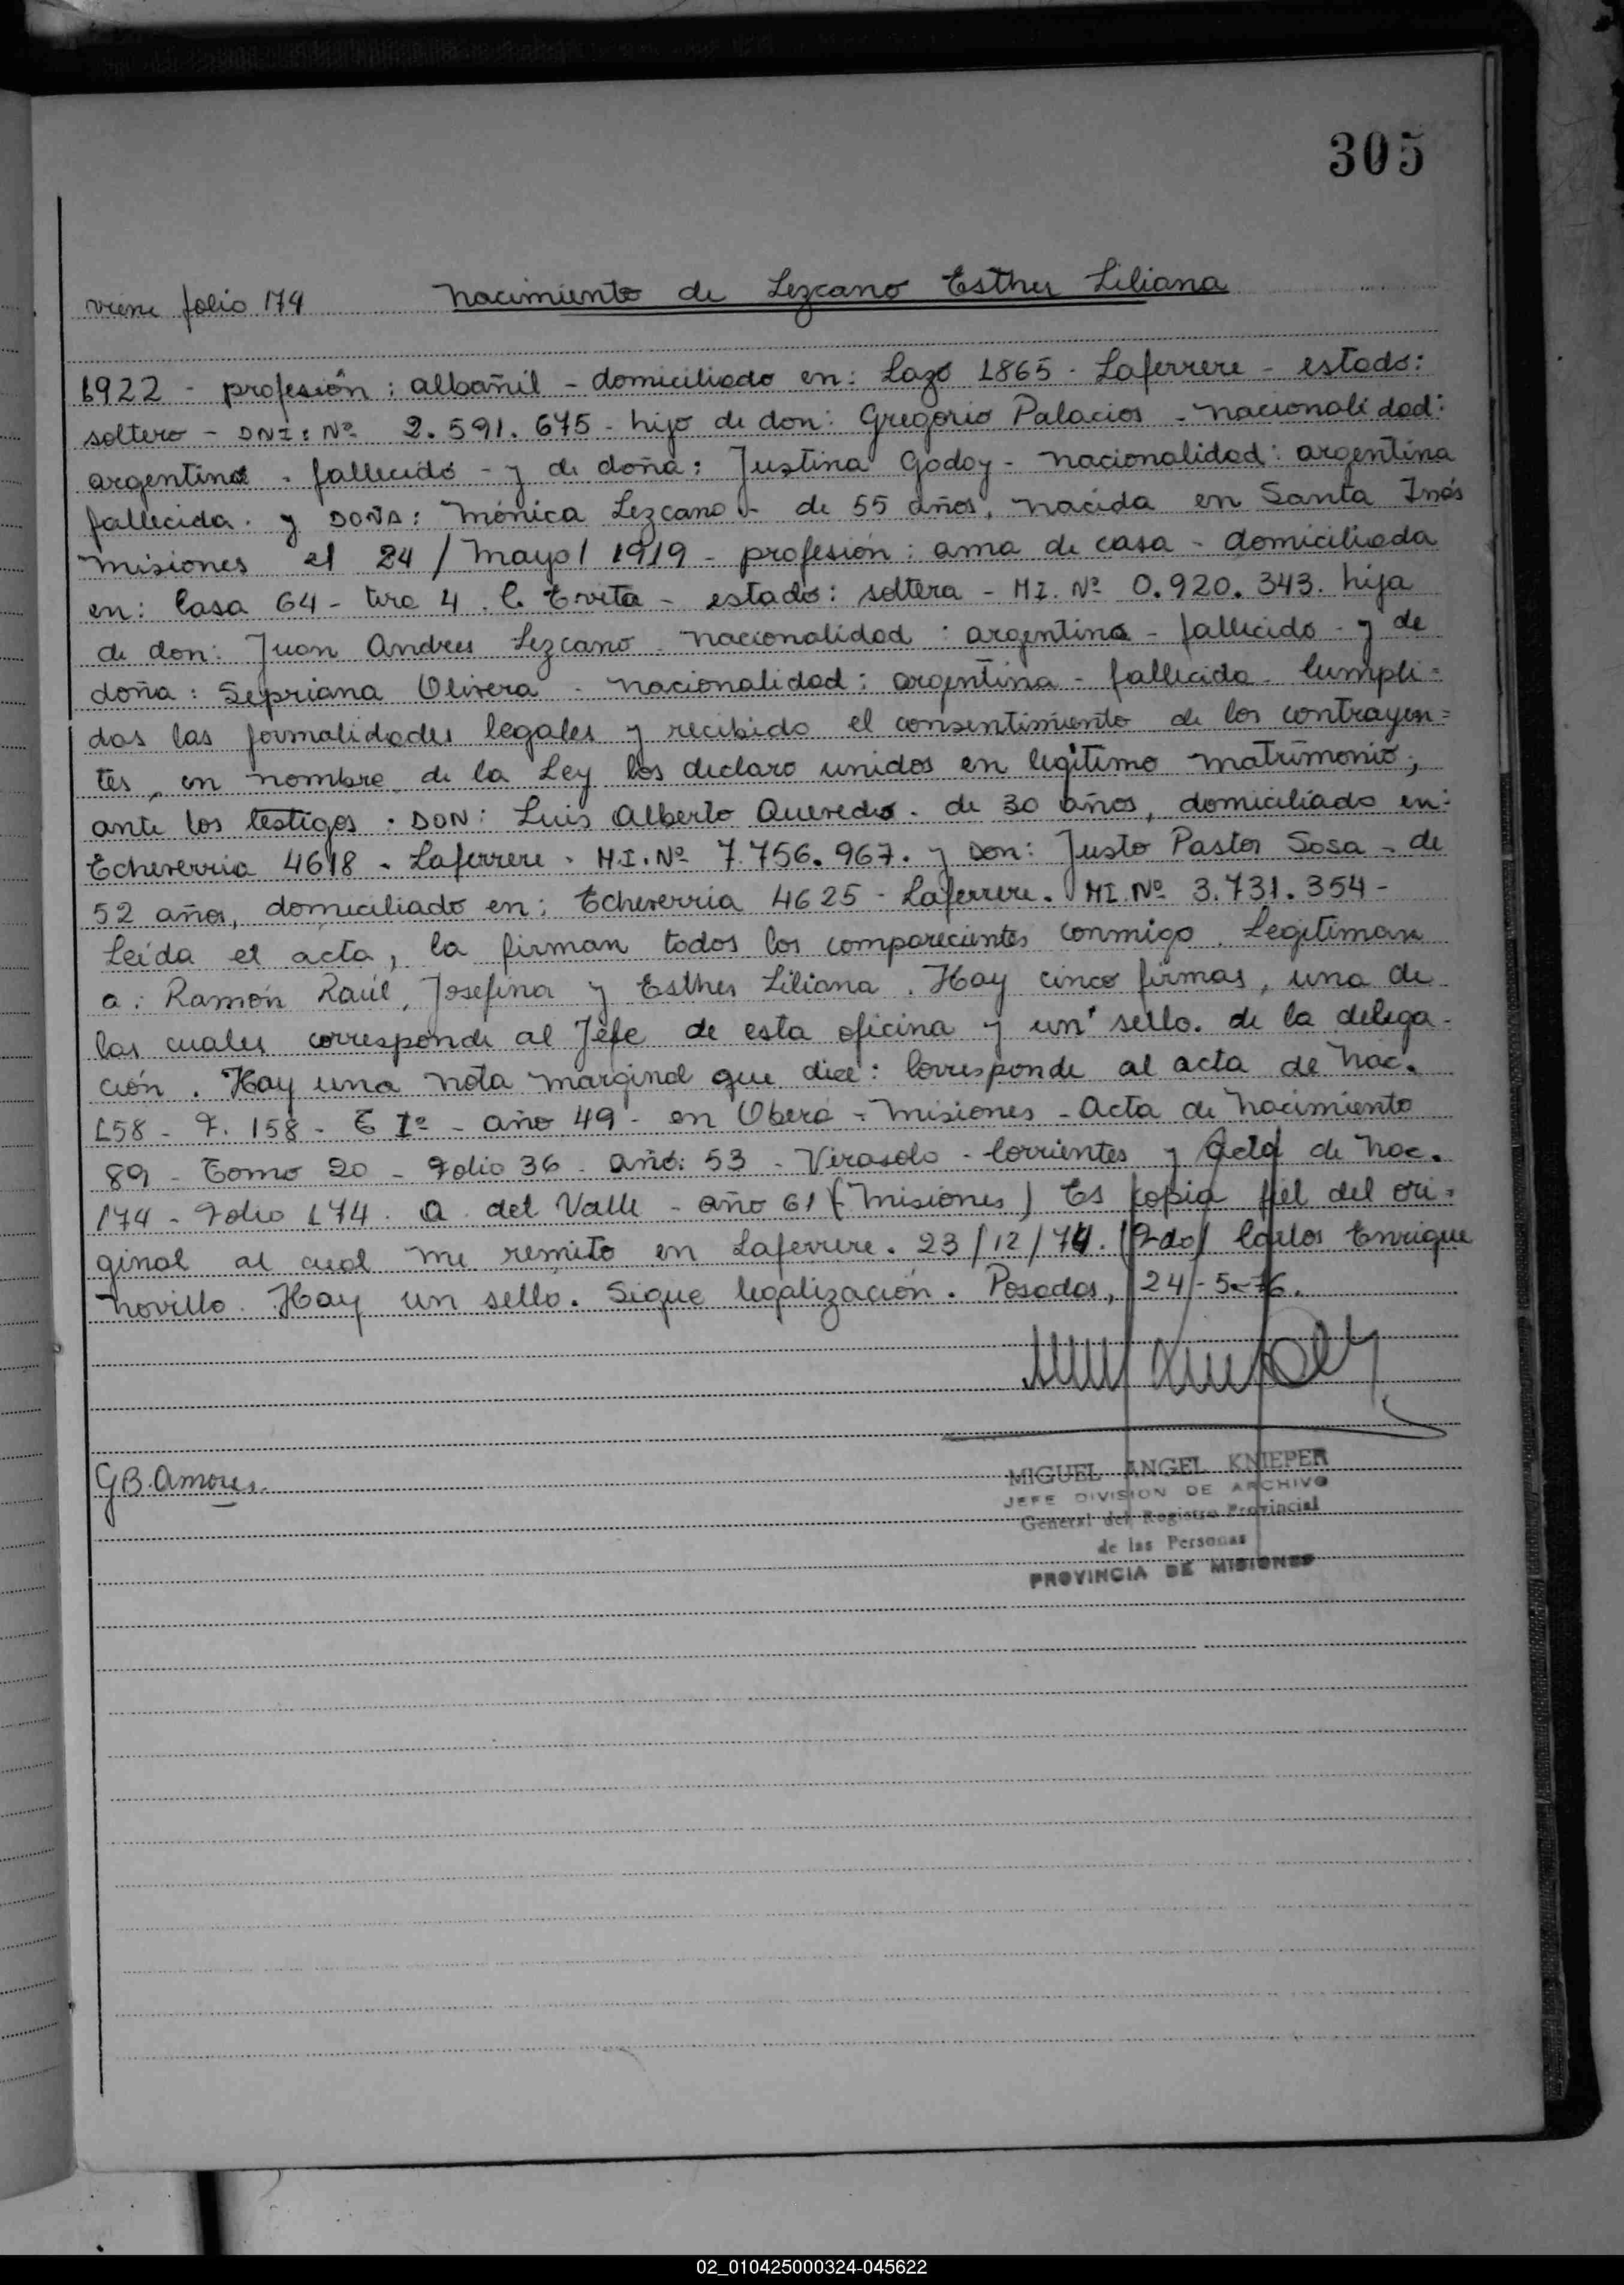 305
viene folio 174 Nacimiento de Lezcano Esther Liliana
1922 - profesión: albañil - domiciliado en: Lazo 1865 - Laferrere - estado:
soltero - DNI: Nº 2.591.675 - hijo de don: Gregorio Palacios - nacionalidad:
argentino - fallecido - y de doña: Justina Godoy - nacionalidad: argentina
fallecida. y DOÑA: Mónica Lezcano - de 55 años, nacida en Santa Inés
Misiones el 24/Mayo/1919 - profesión: ama de casa - domiciliada
en: Casa 64 - tira 4. C. Evita - estado: soltera - MI. Nº 0.920.343. hija
de don: Juan Andres Lezcano - nacionalidad: argentino - fallecido - y de
doña: Sepriana Olivera - nacionalidad: argentina - fallecida - Cumpli=
das las formalidades legales y recibido el consentimiento de los contrayen=
tes, en nombre de la Ley los declaro unidos en legítimo matrimonio;
ante los testigos. DON: Luis Alberto Quevedo. de 30 años, domiciliado en:
Echeverria 4618 - Laferrere - M.I. Nº 7.756.967. y Don: Justo Pastor Sosa - de
52 años, domiciliado en: Echeverria 4625 - Laferrere. MI. Nº 3.731.354 -
Leída el acta, la firman todos los comparecientes conmigo. Legitiman
a: Ramón Raúl, Josefina y Esther Liliana. Hay cinco firmas, una de
las cuales corresponde al Jefe de esta oficina y un sello. de la delega-
ción. Hay una nota marginal que dice: Corresponde al acta de Nac.
158 - F. 158 - T Iº - año 49 - en Oberá - Misiones - Acta de Nacimiento
89 - Tomo 20 - Folio 36 - año: 53 - Virasolo - Corrientes y Acta de Nac.
174 - Folio 174. A. del Valle - año 61 (Misiones) Es copia fiel del ori=
ginal al cual me remito en Laferrere. 23/12/74. (Fdo) Carlos Enrique
Novillo. Hay un sello. Sigue legalización. Posadas, 24-5-76.
MIGUEL ANGEL KNIEPER
JEFE DIVISION DE ARCHIVO
General del Registro Provincial
de las Personas
PROVINCIA DE MISIONES
02_010425000324-045622